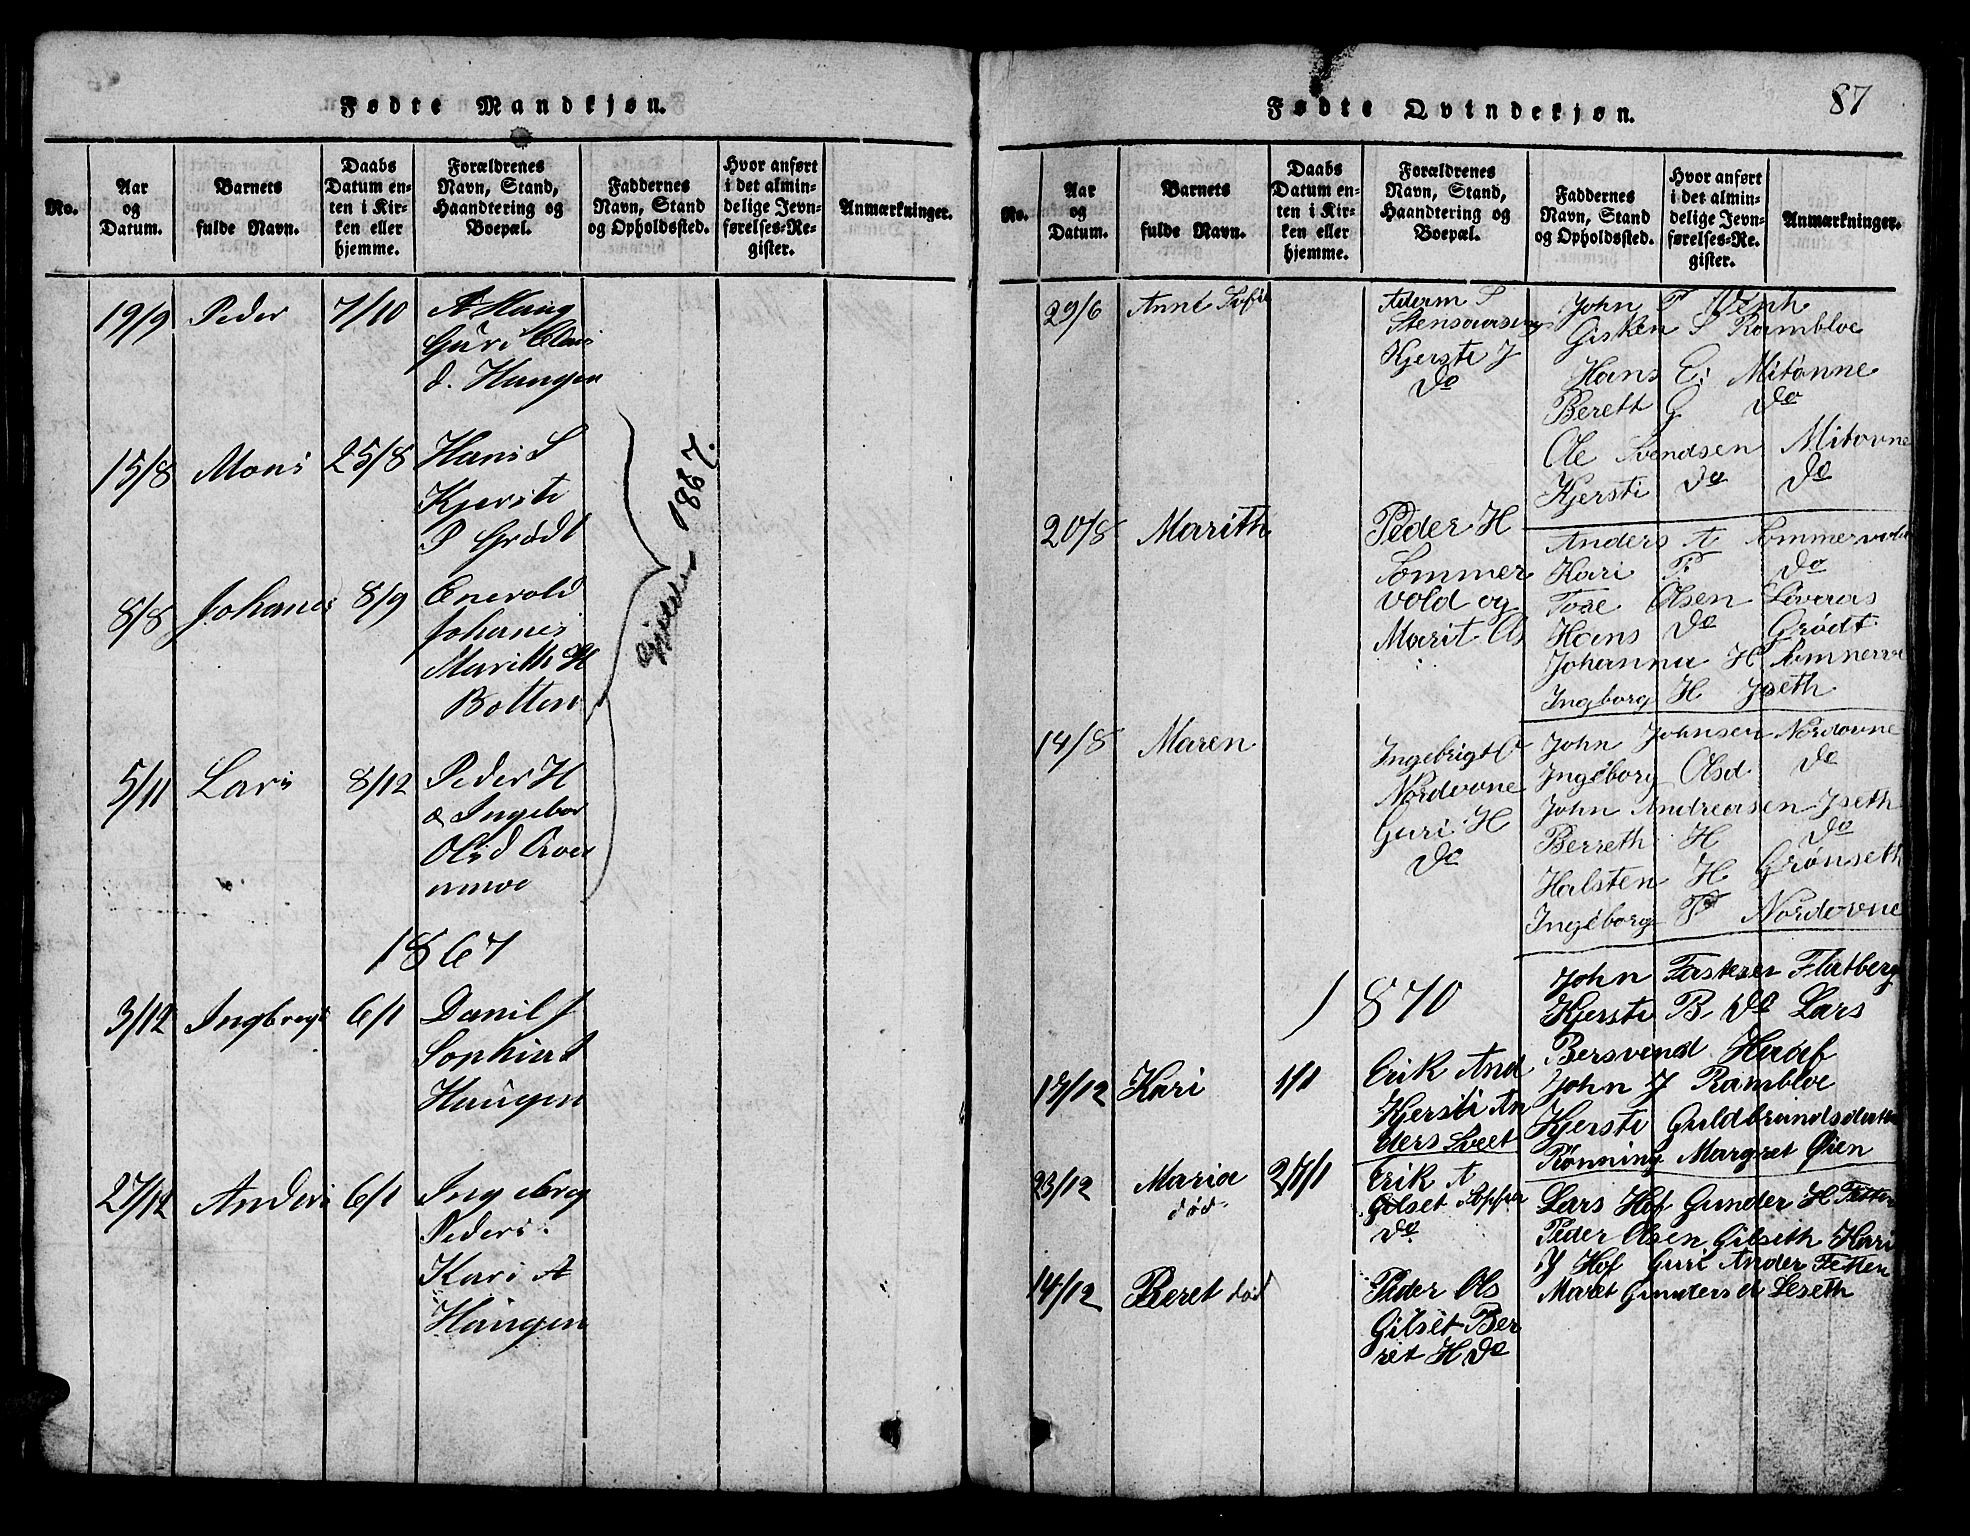 Fødte Mandkjøn.
No.
Aar og Datum.
Barnets fulde Navn.
Daabs Datum enten i Kirken eller hjemme.
Forældrenes Navn, Stand, Haandtering og Boepæl.
Faddernes Navn, Stand og Opholdssted.
Hvor anført i det almindelige Jevnførelses-Register.
Anmærkninger.
19/9 Peder 7/10 A Haug
Guri
d. Haugen
15/8 Mons 25/8 Hans S
Kjersti
P Grødt
8/8 Johanes 8/9 Enevold
Johanes
Marith H
Botten
5/11 Lars 8/12 Peder H
& Ingebor
Olsd
Gjelder 1867.
1867
3/12 Ingbregt 6/1 Danil J
Sophia J
Haugen
27/12 Anders 6/1 Ingebreg
Peders
Kari A
Haugen
Fødte Qvindekjøn.
87
No.
Aar og Datum.
Barnets fulde Navn.
Daabs Datum enten i Kirken eller hjemme.
Forældrenes Navn, Stand, Haandtering og Boepæl.
Faddernes Navn, Stand og Opholdssted.
Hvor anført i det almindelige Jevnførelses-Register.
Anmærkninger.
29/6 Anne Sofie
Stensaas
Kjersti J
do
John P
Gisken S Rambloe
Hans E: Mitovne
Berett G do
Ole Svendsen Mitovne
Kjersti do do
20/8 Marith
Peder H
Aommer
vold og
Marit Os
Anders A Aommervold
Kari P. do
Tore Olsen Løveraas
Hans do Grødt
Johanna H Aommervo
Ingborg H Iseth
14/8 Maren
Ingebrigt O
Nordovne
Guri H
do
John Johnsen Nordovne
Ingeborg Olsd do
John Andreasen Iseth
Berreth H do
Halsten H Grønseth
Ingeborg P Nordovne
1870
17/12 Kari 1/1
Erik And
Kjersti An
ders Sveet
John Flatberg
Kjersti B do Lars
Bersvend
John J Rambloe
Kjersti Guldbrandsdatter
Rønning Margret Øien
23/12 Maria død 27/1
Erik A
Gilset Soffia
do
Lars Hof Gunder H Fetten
Peder Olsen Gilseth Kari
J Hof Guri Ander Fetten
Maret Gunders d Leseth
14/12 Beret død
Peder Ols
Gilset Ber
ret H do